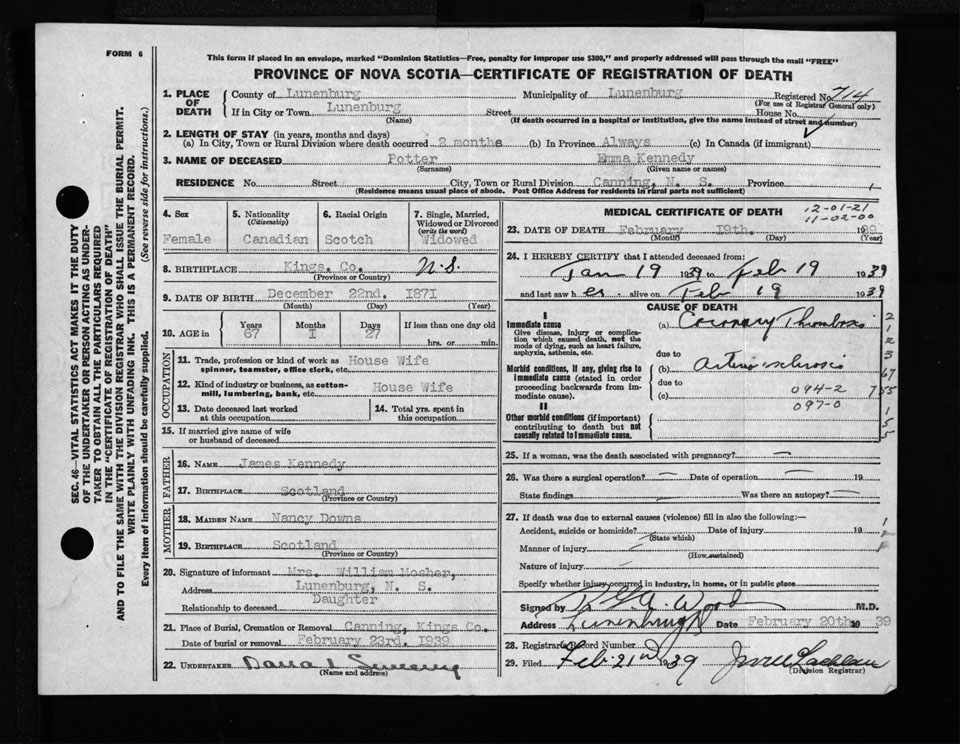 FORM 6
This form if placed in an envelope, marked "Dominion Statistics—Free, penalty for improper use $300," and properly addressed will pass through the mail "FREE"
PROVINCE OF NOVA SCOTIA—CERTIFICATE OF REGISTRATION OF DEATH
SEC. 46—VITAL STATISTICS ACT MAKES IT THE DUTY
OF THE UNDERTAKER OR PERSON ACTING AS UNDER-
TAKER TO OBTAIN ALL THE PARTICULARS REQUIRED
IN THE "CERTIFICATE OF REGISTRATION OF DEATH"
AND TO FILE THE SAME WITH THE DIVISION REGISTRAR WHO SHALL ISSUE THE BURIAL PERMIT.
WRITE PLAINLY WITH UNFADING INK. THIS IS A PERMANENT RECORD.
Every item of information should be carefully supplied. (See reverse side for instructions.)
1. PLACE OF DEATH
County of Lunenburg Municipality of Lunenburg Registered No. 714
(For use of Registrar General only)
If in City or Town Lunenburg Street House No.
(Name) (If death occurred in a hospital or institution, give the name instead of street and number)
2. LENGTH OF STAY (in years, months and days)
(a) In City, Town or Rural Division where death occurred 2 months (b) In Province Always (c) In Canada (if immigrant)
3. NAME OF DECEASED Potter Emma Kennedy
(Surname) (Given name or names)
RESIDENCE No. Street City, Town or Rural Division Canning, N. S. Province
(Residence means usual place of abode. Post Office Address for residents in rural parts not sufficient)
4. Sex
Female
5. Nationality
(Citizenship)
Canadian
6. Racial Origin
Scotch
7. Single, Married,
Widowed or Divorced
(write the word)
Widowed
8. BIRTHPLACE Kings. Co. N.S.
(Province or Country)
9. DATE OF BIRTH December 22nd. 1871
(Month) (Day) (Year)
10. AGE in Years Months Days If less than one day old
67 I 27 hrs. or min.
OCCUPATION
11. Trade, profession or kind of work as House Wife
spinner, teamster, office clerk, etc.
12. Kind of industry or business, as cotton-
mill, lumbering, bank, etc. House Wife
13. Date deceased last worked
at this occupation
14. Total yrs. spent in
this occupation
15. If married give name of wife
or husband of deceased
FATHER
16. NAME James Kennedy
17. BIRTHPLACE Scotland
(Province or Country)
MOTHER
18. MAIDEN NAME Nancy Downs
19. BIRTHPLACE Scotland
(Province or Country)
20. Signature of informant Mrs. William Mosher,
Address Lunenburg, N. S.
Relationship to deceased Daughter
21. Place of Burial, Cremation or Removal Canning, Kings Co.
Date of burial or removal February 23rd. 1939
22. UNDERTAKER
(Name and address)
MEDICAL CERTIFICATE OF DEATH
12-01-21
11-02-00
23. DATE OF DEATH February 19th. 1939
(Month) (Day) (Year)
24. I HEREBY CERTIFY that I attended deceased from:
Jan 19 1939 to Feb 19 1939
and last saw h er alive on Feb 19 1939
CAUSE OF DEATH
I
Immediate cause
Give disease, injury or complica-
tion which caused death, not the
mode of dying, such as heart failure,
asphyxia, asthenia, etc.
(a) Coronary Thrombosis
due to
Morbid conditions, if any, giving rise to
immediate cause (stated in order
proceeding backwards from im-
mediate cause).
(b) Arteriosclerosis
due to 094-2
(c) 097-0
II
Other morbid conditions (if important)
contributing to death but not
causally related to immediate cause.
25. If a woman, was the death associated with pregnancy? —
26. Was there a surgical operation? — Date of operation — 19
State findings Was there an autopsy? —
27. If death was due to external causes (violence) fill in also the following:—
Accident, suicide or homicide? Date of injury 19
(State which)
Manner of injury
(How sustained)
Nature of injury
Specify whether injury occurred in industry, in home, or in public place
Signed by Wood M.D.
Address Lunenburg Date February 20th 1939
28. Registrar's Record Number
29. Filed Feb. 21 1939
(Division Registrar)